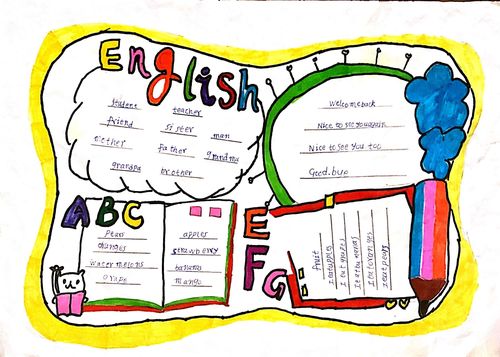 English
student teacher
friend sister man
mother father grandma
grandpa brother
Welcomeback
Nice to see youagain
Nice to see you too
Good.bye
ABC
Pears
oranges
watermelons
grape
apples
strawberry
bananas
mango
EFG
fruit
I eat apples
I eat grapes
I eat bananas
I eat oranges
I eat pears